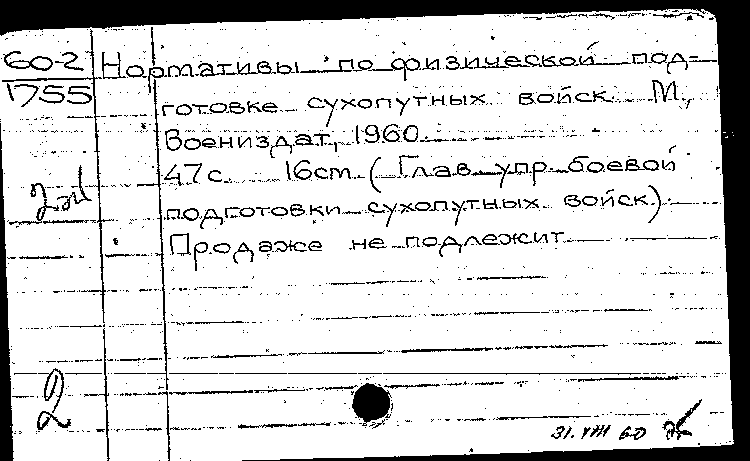 60-2 Нормативы по физической под-
1755 готовке сухопутных войск. М.,
Воениздат, 1960.
47с. 16cm. (Глав. упр. боевой
2 эк подготовки сухопутных войск).
Продаже не подлежит
2
31.VIII 60